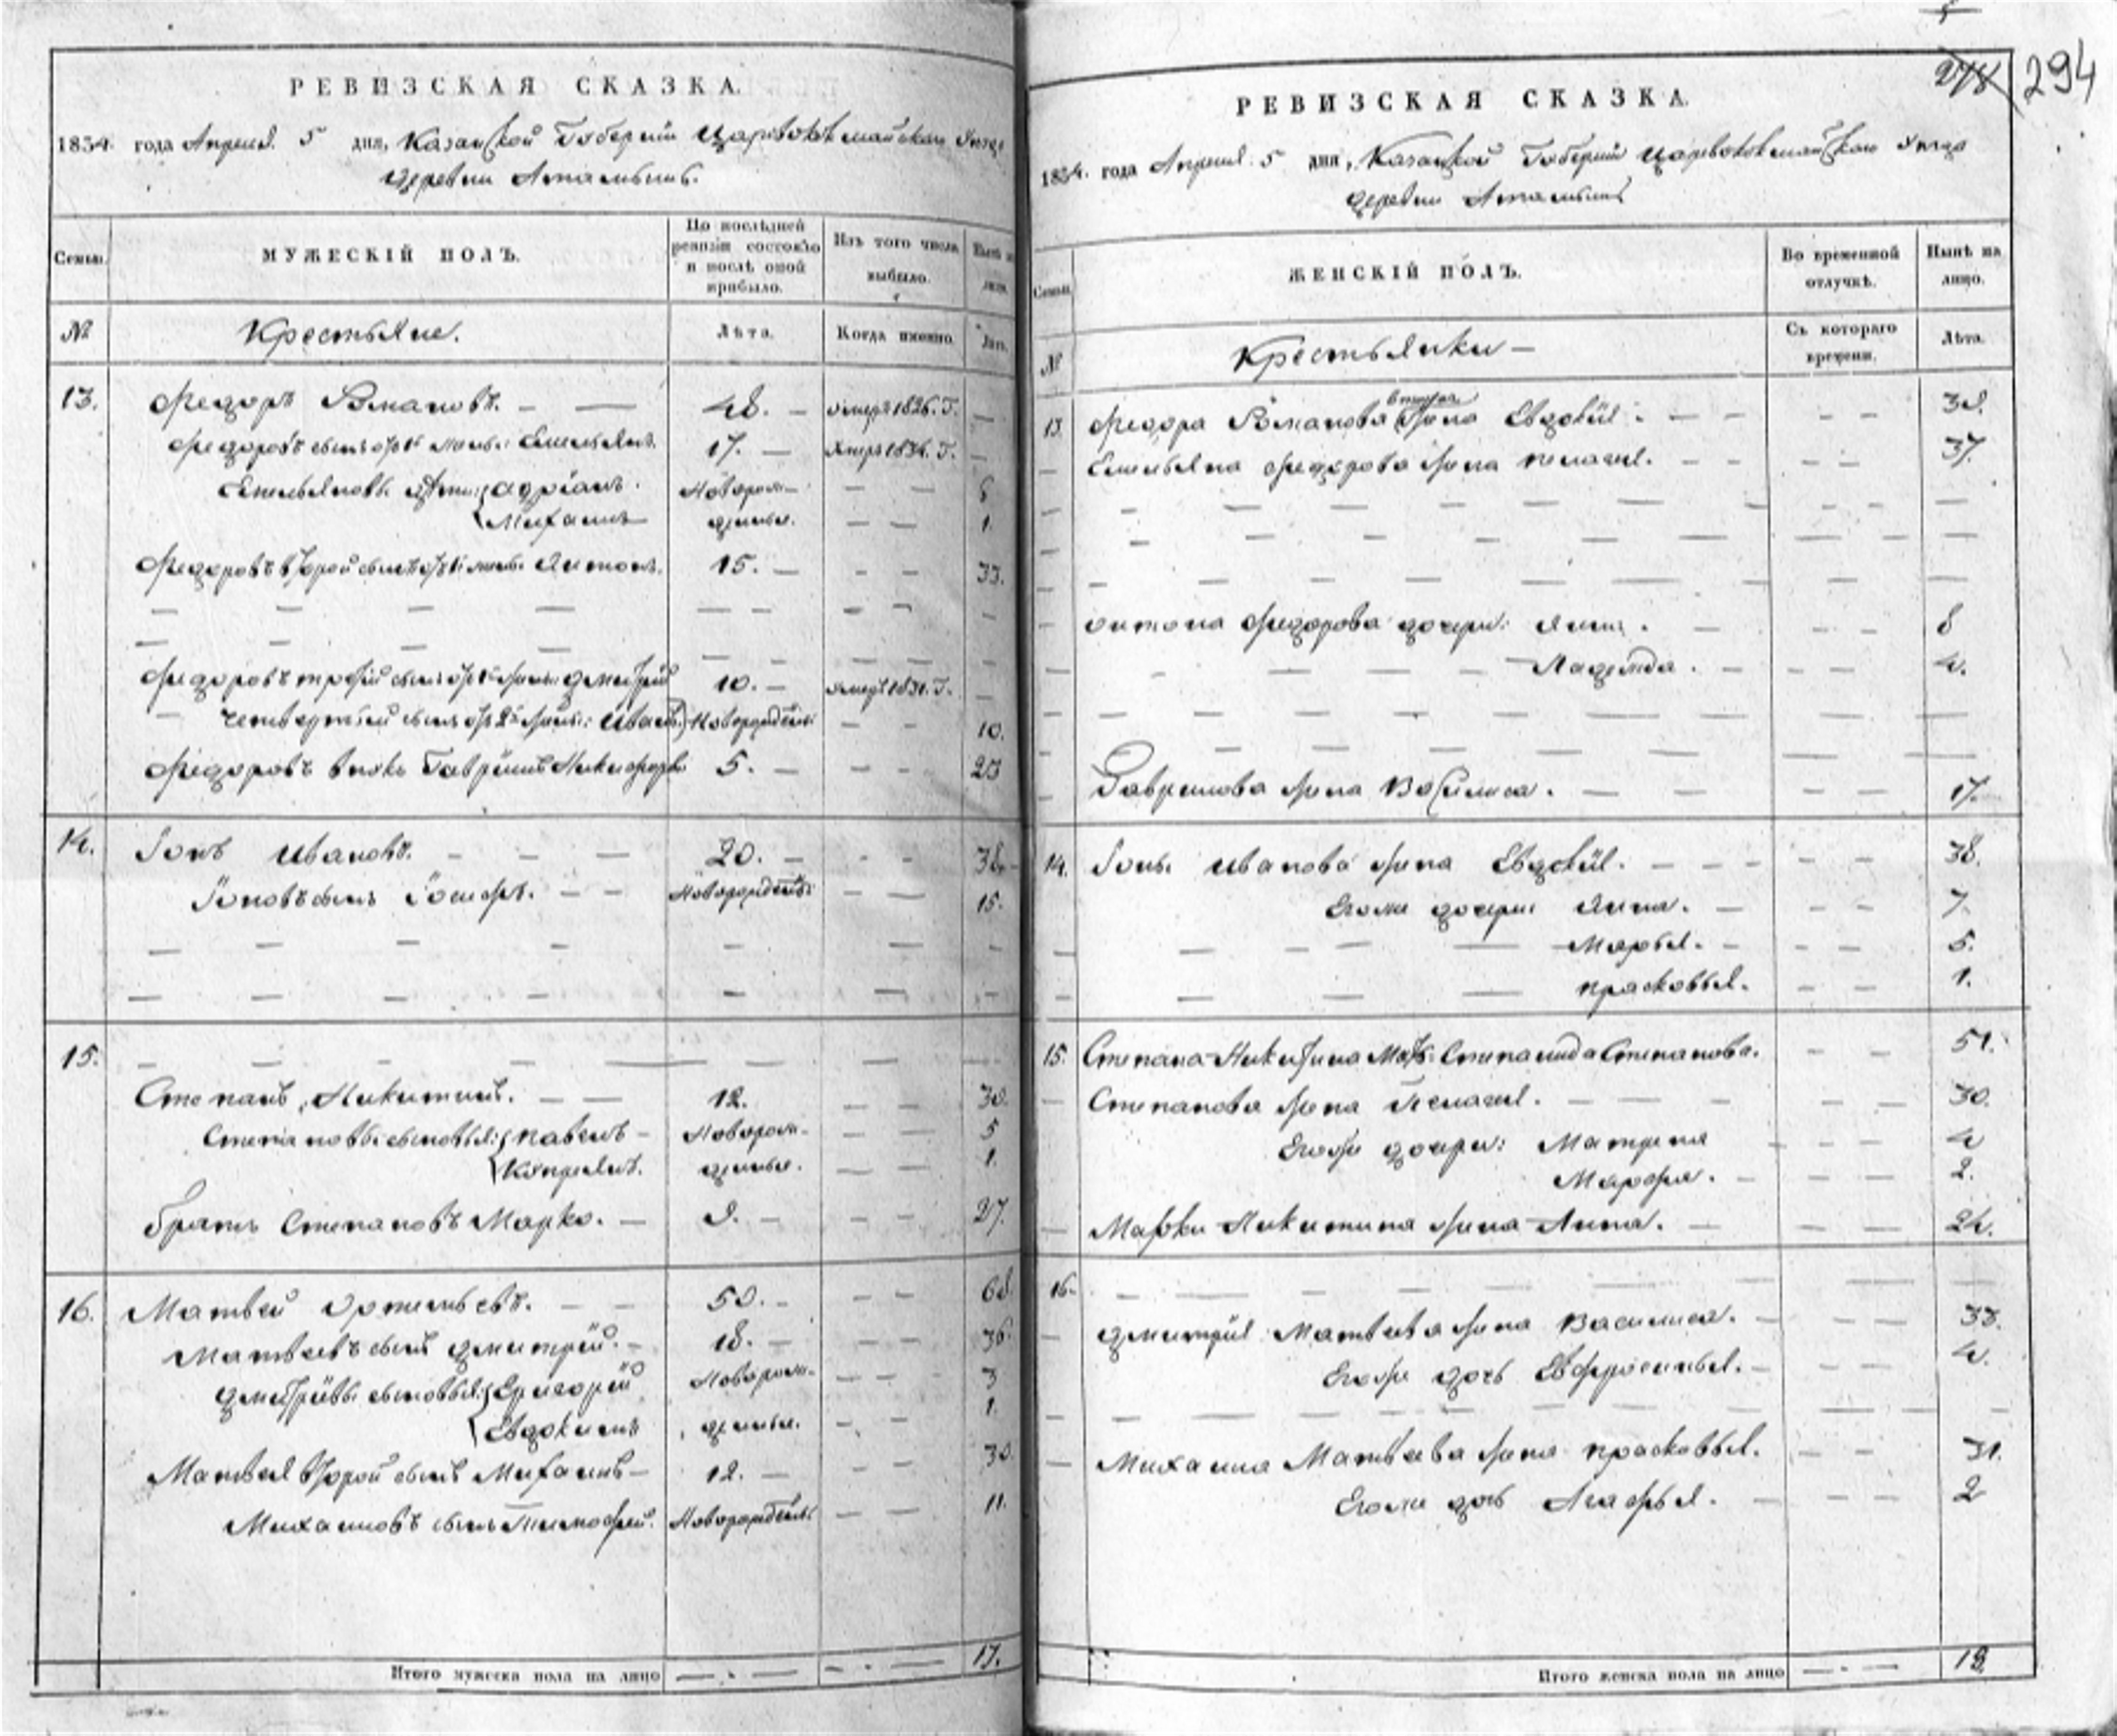 РЕВИЗСКАЯ СКАЗКА.
1834. года Апреля. 5 дня, Казанской Губерніи Царевококшайскаго Уезда
деревни
Семьи.
МУЖЕСКІЙ ПОЛЪ.
По послѣдней ревизіи состояло и послѣ оной прибыло.
Изъ того числа выбыло.
Нынѣ на лицо.
№
Крестьяне.
Лѣта.
Когда именно.
Лѣта.
13. Федоръ Романовъ. 48. умеръ 1826. Г.
Федоровъ сынъ отъ 1й жены: Емельянъ. 17. умеръ 1834. Г.
Емельяновы дѣти: Адріанъ. Новорож- 6
Михаилъ денные. 1.
Федоровъ второй сынъ отъ 1й жены Антонъ. 15. 33.
Федоровъ третій сынъ отъ 1й жены Дмитрій 10. умеръ 1831. Г.
четвертый сынъ отъ 2й жены: Иванъ Новорожденъ 10.
Федоровъ внукъ Гаврилъ Никифоровъ 5. 23
14. Іонъ Ивановъ. 20. 38.
Іоновъ сынъ Іосифъ. Новорожденъ 15.
15.
Степанъ Никитинъ. 12. 30.
Степановы сыновья: Павелъ Новорож- 5
Кондратъ. денные. 1.
братъ Степановъ Марко. 9. 27.
16. Матвей Артемьевъ. 50. 68.
Матвеевъ сынъ Дмитрій. 18. 36.
Дмитріевы сыновья: Григорій Новорож- 3
Евдокимъ денные. 1.
Матвея второй сынъ Михаилъ 12. 30.
Михаиловъ сынъ Тимофей. Новорожденъ 11.
Итого мужеска пола на лицо 17.
294
РЕВИЗСКАЯ СКАЗКА.
1834. года Апреля 5 дня, Казанской Губерніи Царевококшайскаго Уезда
деревни
Семьи.
ЖЕНСКІЙ ПОЛЪ.
Во временной отлучкѣ.
Нынѣ на лицо.
№
Крестьянки
Съ котораго времени.
Лѣта.
13. Федора Романова вторая жена Евдокія. 39.
Емельяна Федорова жена Пелагея. 37.
Антона Федорова дочери: Анна. 8
Надежда. 4.
Гаврилова жена Василиса. 17.
14. Іоны Иванова жена Евдокія. 38.
Егоже дочери: Анна. 7.
Марья. 5.
Прасковья. 1.
15. Степана Никитина мать Степанида Степанова. 51.
Степанова жена Пелагея. 30.
Егоже дочери: Матрена 4
Марфа. 2.
Марки Никитина жена Анна. 24.
16.
Дмитрія Матвеева жена Василиса. 33.
Егоже дочь Евфросинья. 4.
Михаила Матвеева жена Прасковья. 31.
Егоже дочь Агафья. 2
Итого женска пола на лицо 18.